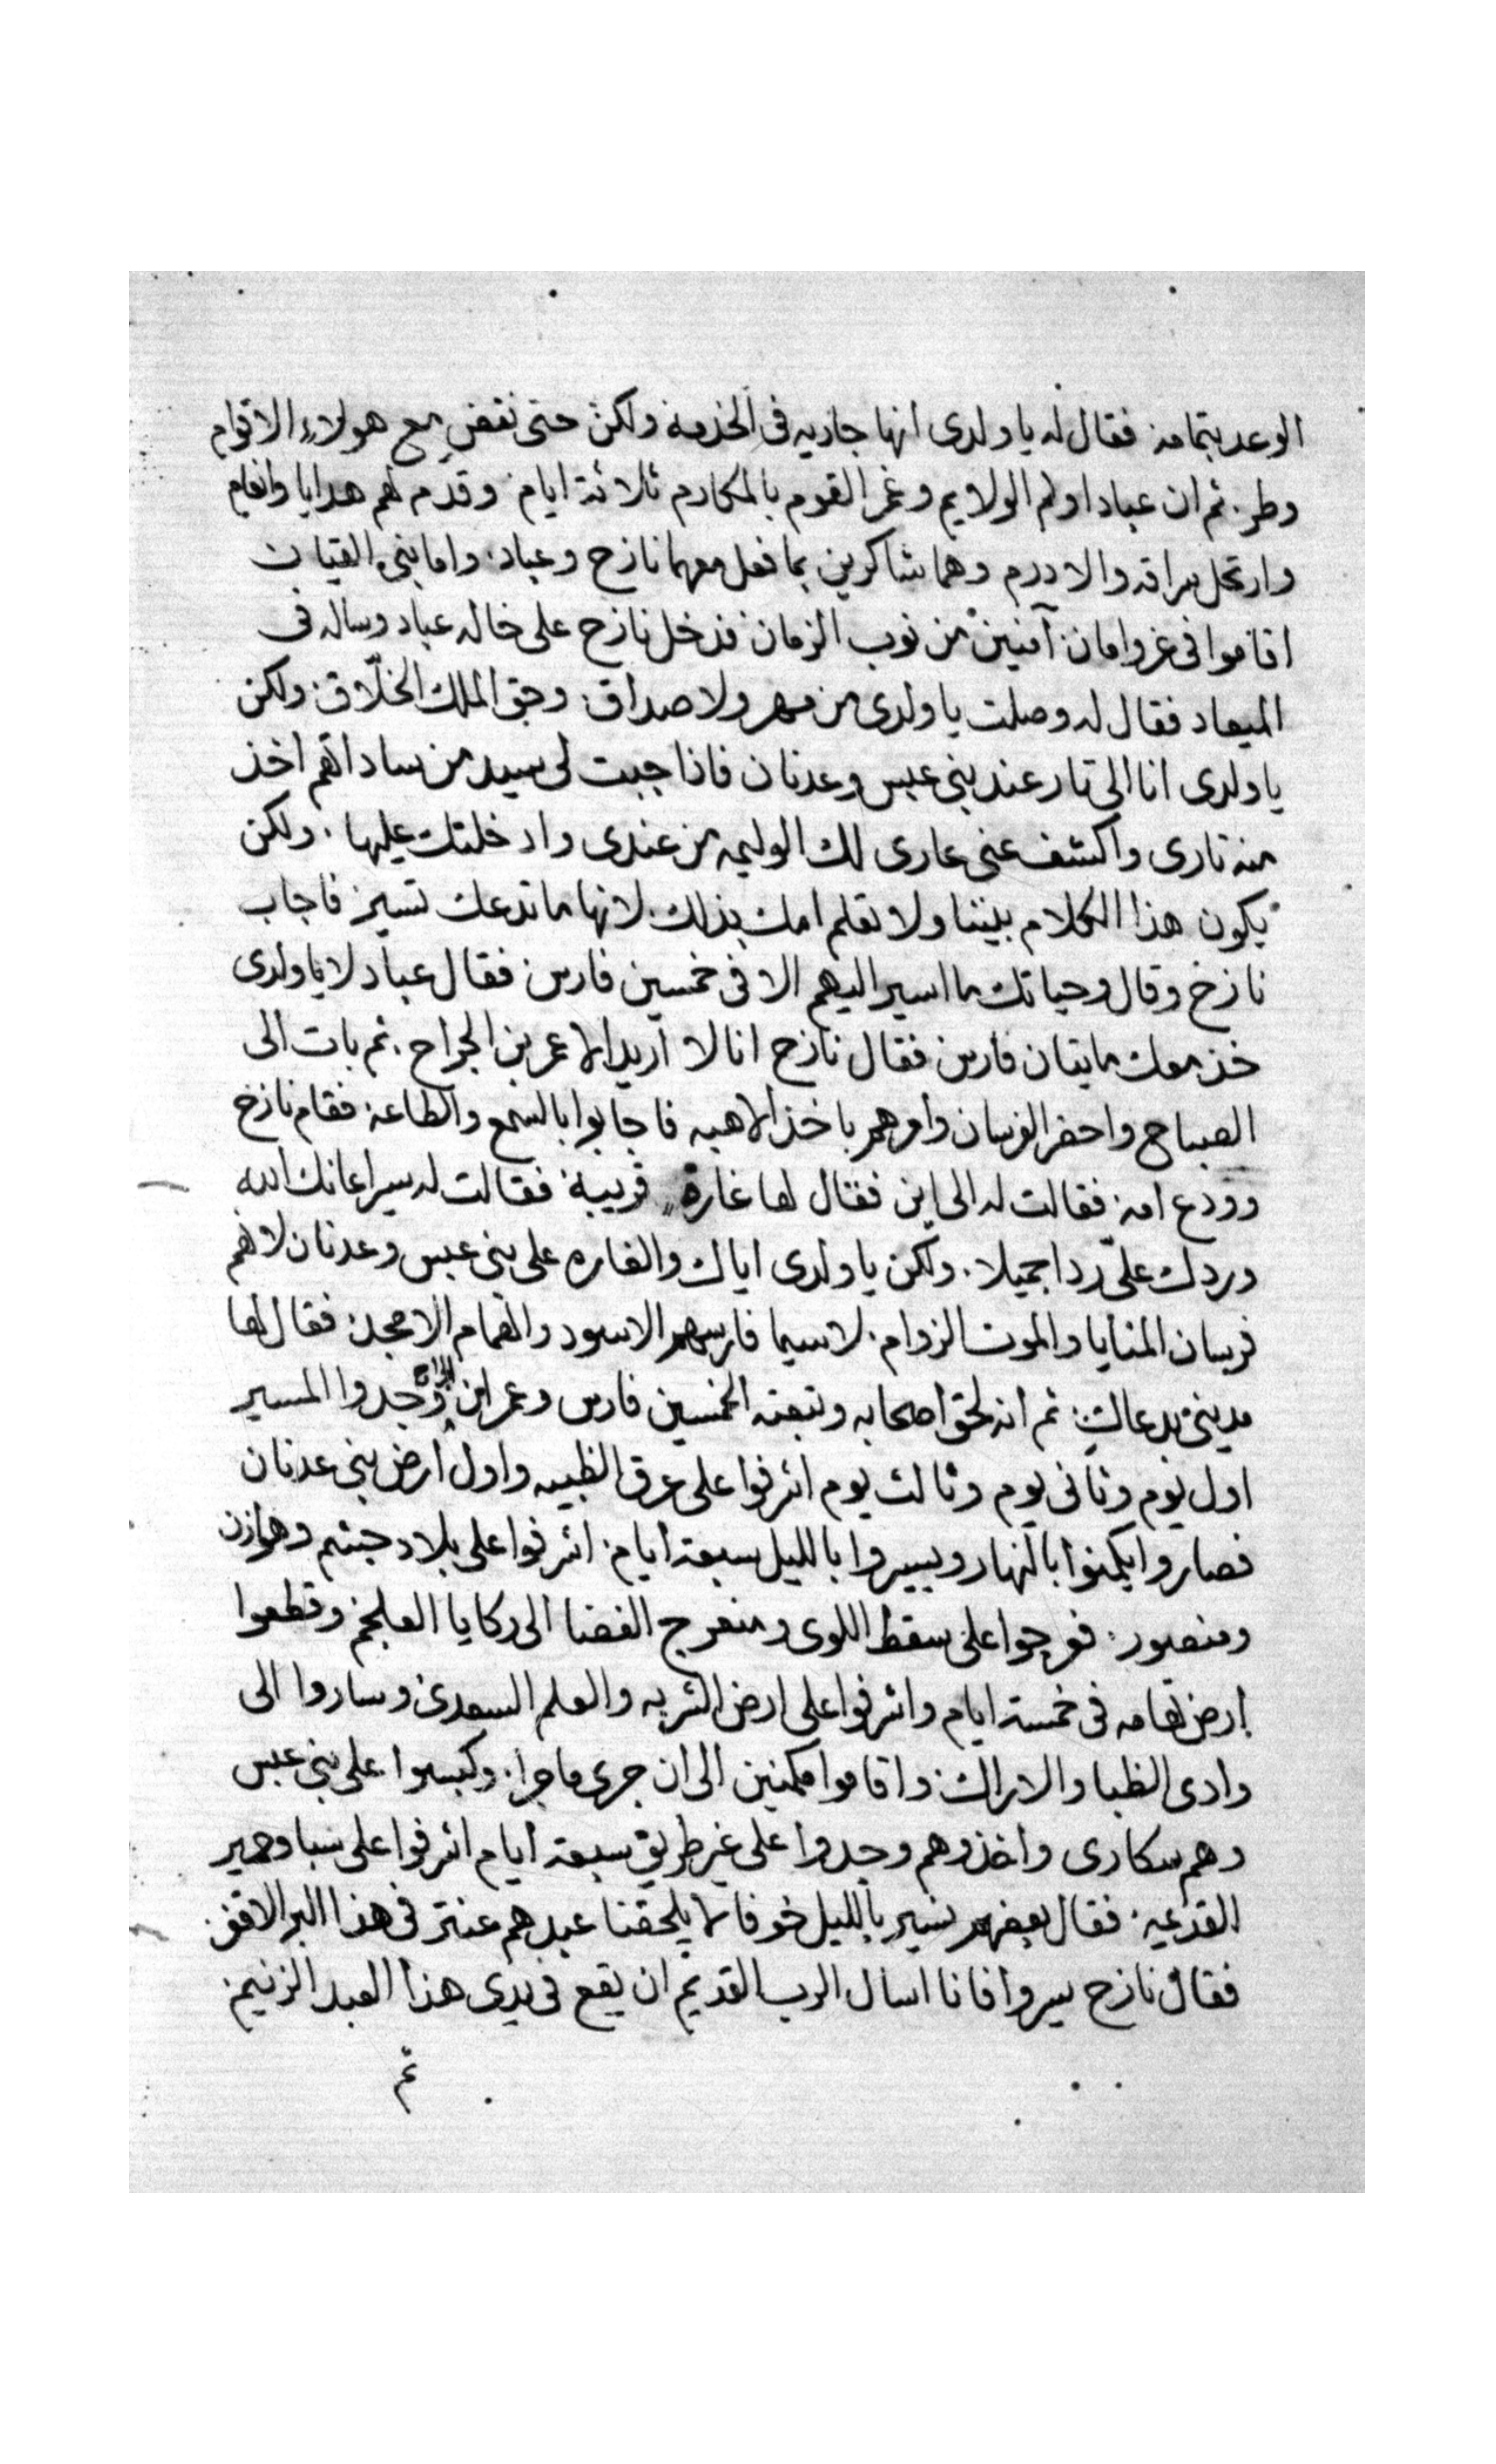 الوعد بتمامه فقال له يا ولدى انها جاريه فى الخدمة ولكن حتى نقضى مع هولاء الاقوام
وطر. ثم ان عباد اولم الولايم وغمر القوم بالمكارم ثلاثة ايام. وقدم لهم هدايا وانعام
وارتحل سراقه والادرم وهما شاكرين بما فعل معهما نازح وعباد. واما بنى القيان
اقاموا فى عز وامان. آمنين من نوب الزمان فدخل نازح على خاله عباد وساله فى
الميعاد فقال له وصلت يا ولدى من مهر ولا صداق. وحق الملك الخلّاق. ولكن
يا ولدى انا الى تار عند بنى عبس وعدنان فاذا جبت لى سيد من ساداتهم اخذ
منه تارى واكشف عنى عارى لك الوليمه من عندى وادخلتك عليها. ولكن
يكون هذا الكلام بيننا ولا تعلم امك بذلك. لانها ما تدعك تسير فاجاب
نازح وقال وحياتك ما اسير اليهم الا فى خمسين فارس فقال عباد لا يا ولدى
خذ معك مايتان فارس فقال نازح انا لا اريد الا عمر بن الجراح. ثم بات الى
الصباح واحضر الفرسان وامرهم باخذ الاهبه فاجابوا بالسمع والطاعة فقام نازح
وودع امه فقالت له الى اين فقال لها غارة قريبة فقالت له سير اعانك الله
وردك علىّ ردا جميلا. ولكن يا ولدى اياك والغاره على بنى عبس وعدنان لانهم
فرسان المنايا والموت الزوام. لاسيما فارسهم الاسود والهمام الامجد فقال لها
مدينى بدعاك ثم انه لحق اصحابه وتبعته الخمسين فارس وعمر ابن الجراح وجدوا المسير
اول يوم وثانى يوم وثالث يوم اشرفوا على عرق الظبيه واول ارض بنى عدنان
فصاروا يكمنوا بالنهار ويسيروا بالليل سبعة ايام. اشرفوا على بلاد جشم وهوازن
ومنصور. فعرجوا على سقط اللوى ومنعرج الغضا الى ركايا العلجم وقطعوا
ارض تهامه فى خمسة ايام واشرفوا على ارض الشربه والعلم السعدى وساروا الى
وادى الظبا والاراك واقاموا مكمنين الى ان جرى ما جرا. وكبسوا على بنى عبس
وهم سكارى واخذوهم وجدوا على غير طريق سبعة ايام اشرفوا على سبا وحمير
القدعيه. فقال بعضهم نسير بالليل خوفا لا يلحقنا عبدهم عنتر فى هذا البر الاقفر
فقال نازح سيروا فانا اسال الرب القديم ان يقع فى يدى هذا العبد الزنيم.
ثم